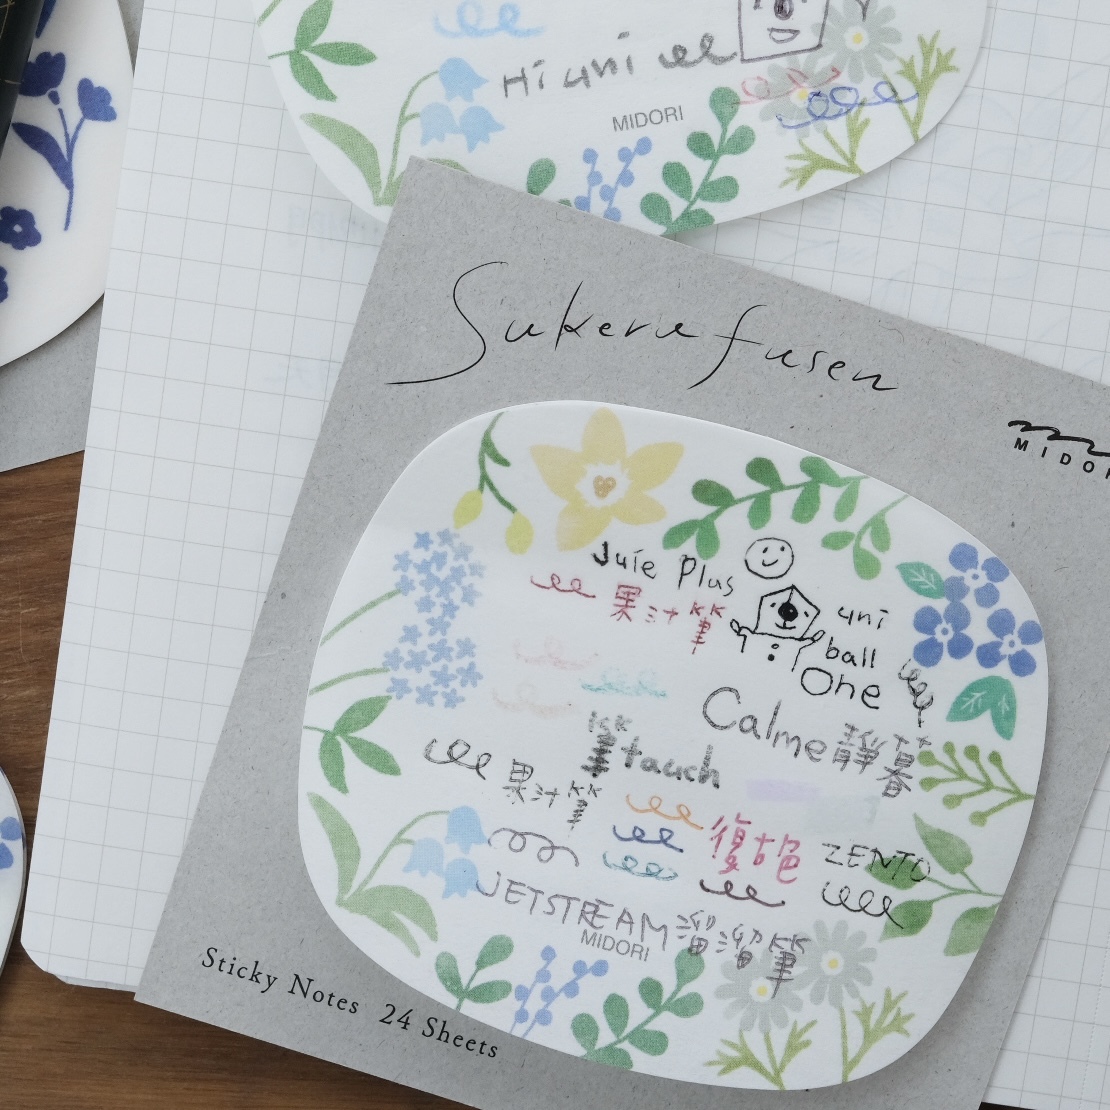 Hi uni
MIDORI
Sukeru fusen
MIDORI
Juie Plus
果汁筆
uni
ball
One
Calme 靜暮
筆touch
果汁筆
復古色
ZENTO
JETSTREAM 溜溜筆
MIDORI
Sticky Notes 24 Sheets